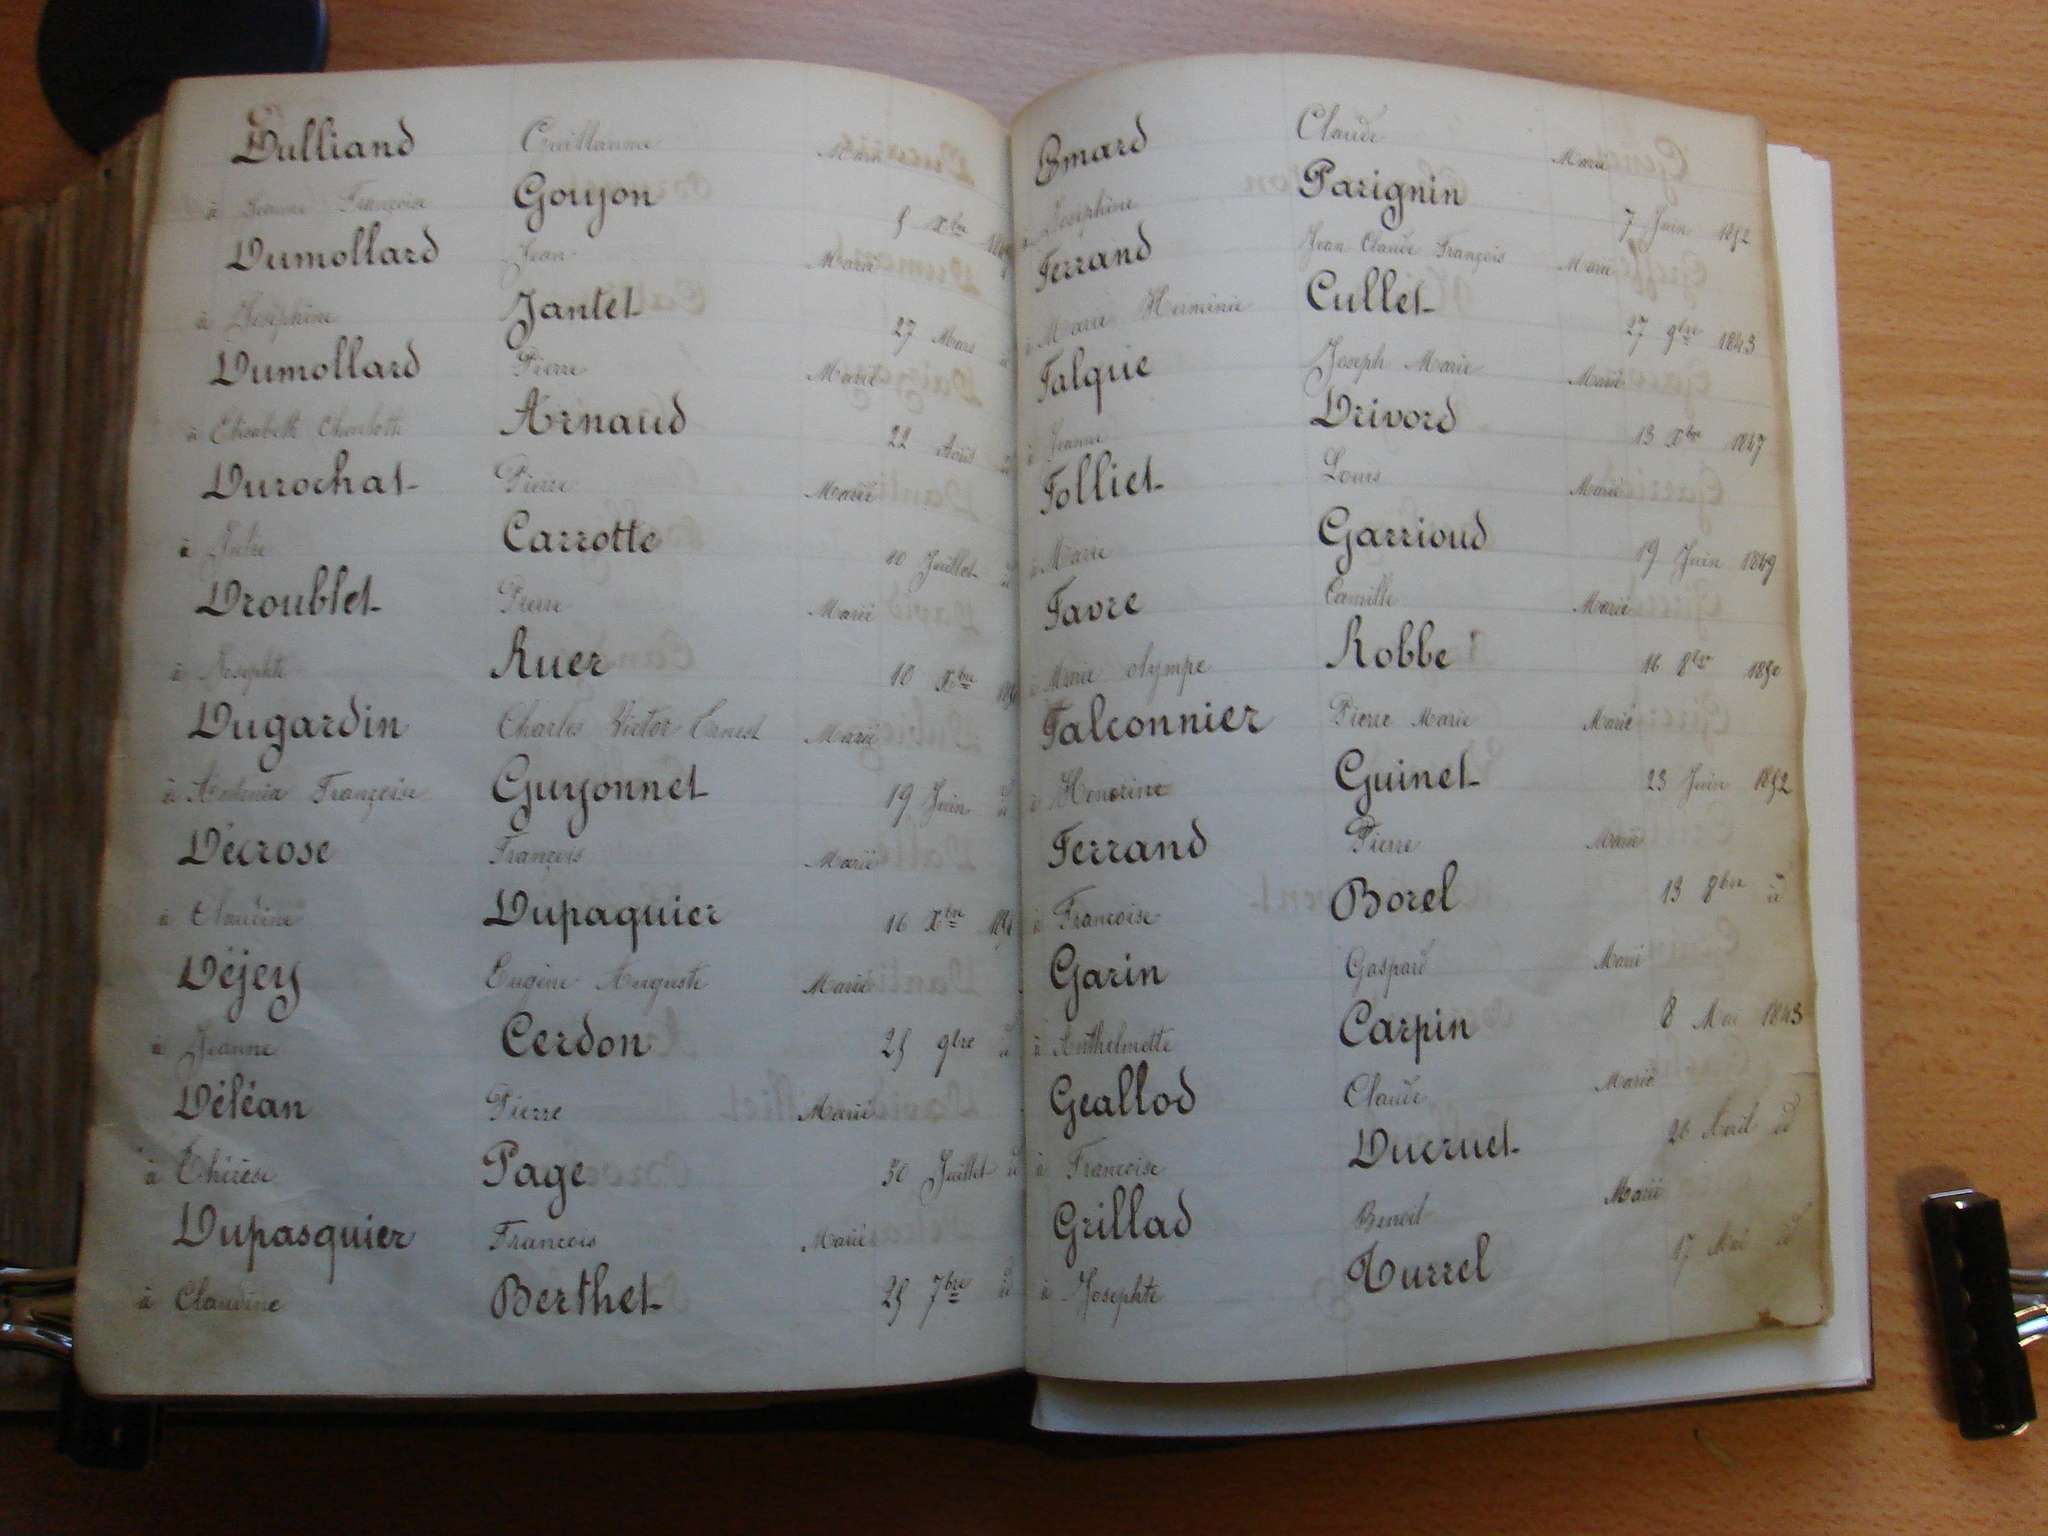 Dulliand Guillaume Marié
à Jeanne Françoise Goujon 5 Xbre
Dumollard Jean Marié
à Joséphine Jantet 27 Mars
Dumollard Pierre Marié
à Elisabeth Charlotte Arnaud 22 Août
Durochat Pierre Marié
à Julie Carrotte 10 Juillet
Droublet Pierre Marié
à Josephte Ruer 10 Xbre
Dugardin Charles Victor Ernest Marié
à Françoise Guyonnet 19 Juin
Décrose François Marié
à Claudine Dupaquier 16 Xbre
Déjey Eugène Auguste Marié
à Jeanne Cerdon 25 9bre
Déléan Pierre Marié
à Thérèse Page 30 Juillet id
Dupasquier François Marié
à Claudine Berthet 25 7bre id
Emard Claude Marié
à Joséphine Parignin 7 Juin 1852
Ferrand Jean Claude François Marié
à Marie Herminie Cullet 27 9bre 1843
Falque Joseph Marie Marié
à Jeanne Drivord 13 Xbre 1847
Folliet Louis Marié
à Marie Garrioud 19 Juin 1849
Favre Camille Marié
à Marie Olympe Robbe 16 8bre 1850
Falconnier Pierre Marie Marié
à Honorine Guinet 23 Juin 1852
Ferrand Pierre Marié
à Françoise Borel 13 8bre id
Garin Gaspard Marié
à Anthelmette Carpin 8 Mai 1843
Geallod Claude Marié
à Françoise Ducruet 26 Avril id
Grillad Benoit Marié
à Josephte Turrel 17 Mai id